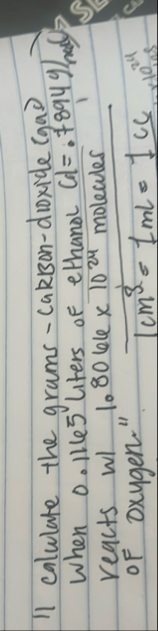 "calculate the grams - carbon-dioxide (gas)
when 0.1165 liters of ethanol (d = .7894 g/
reacts w/ 1.8066 x 10²⁴ molecules
of oxygen."
1cm³ = 1mL = 1cc